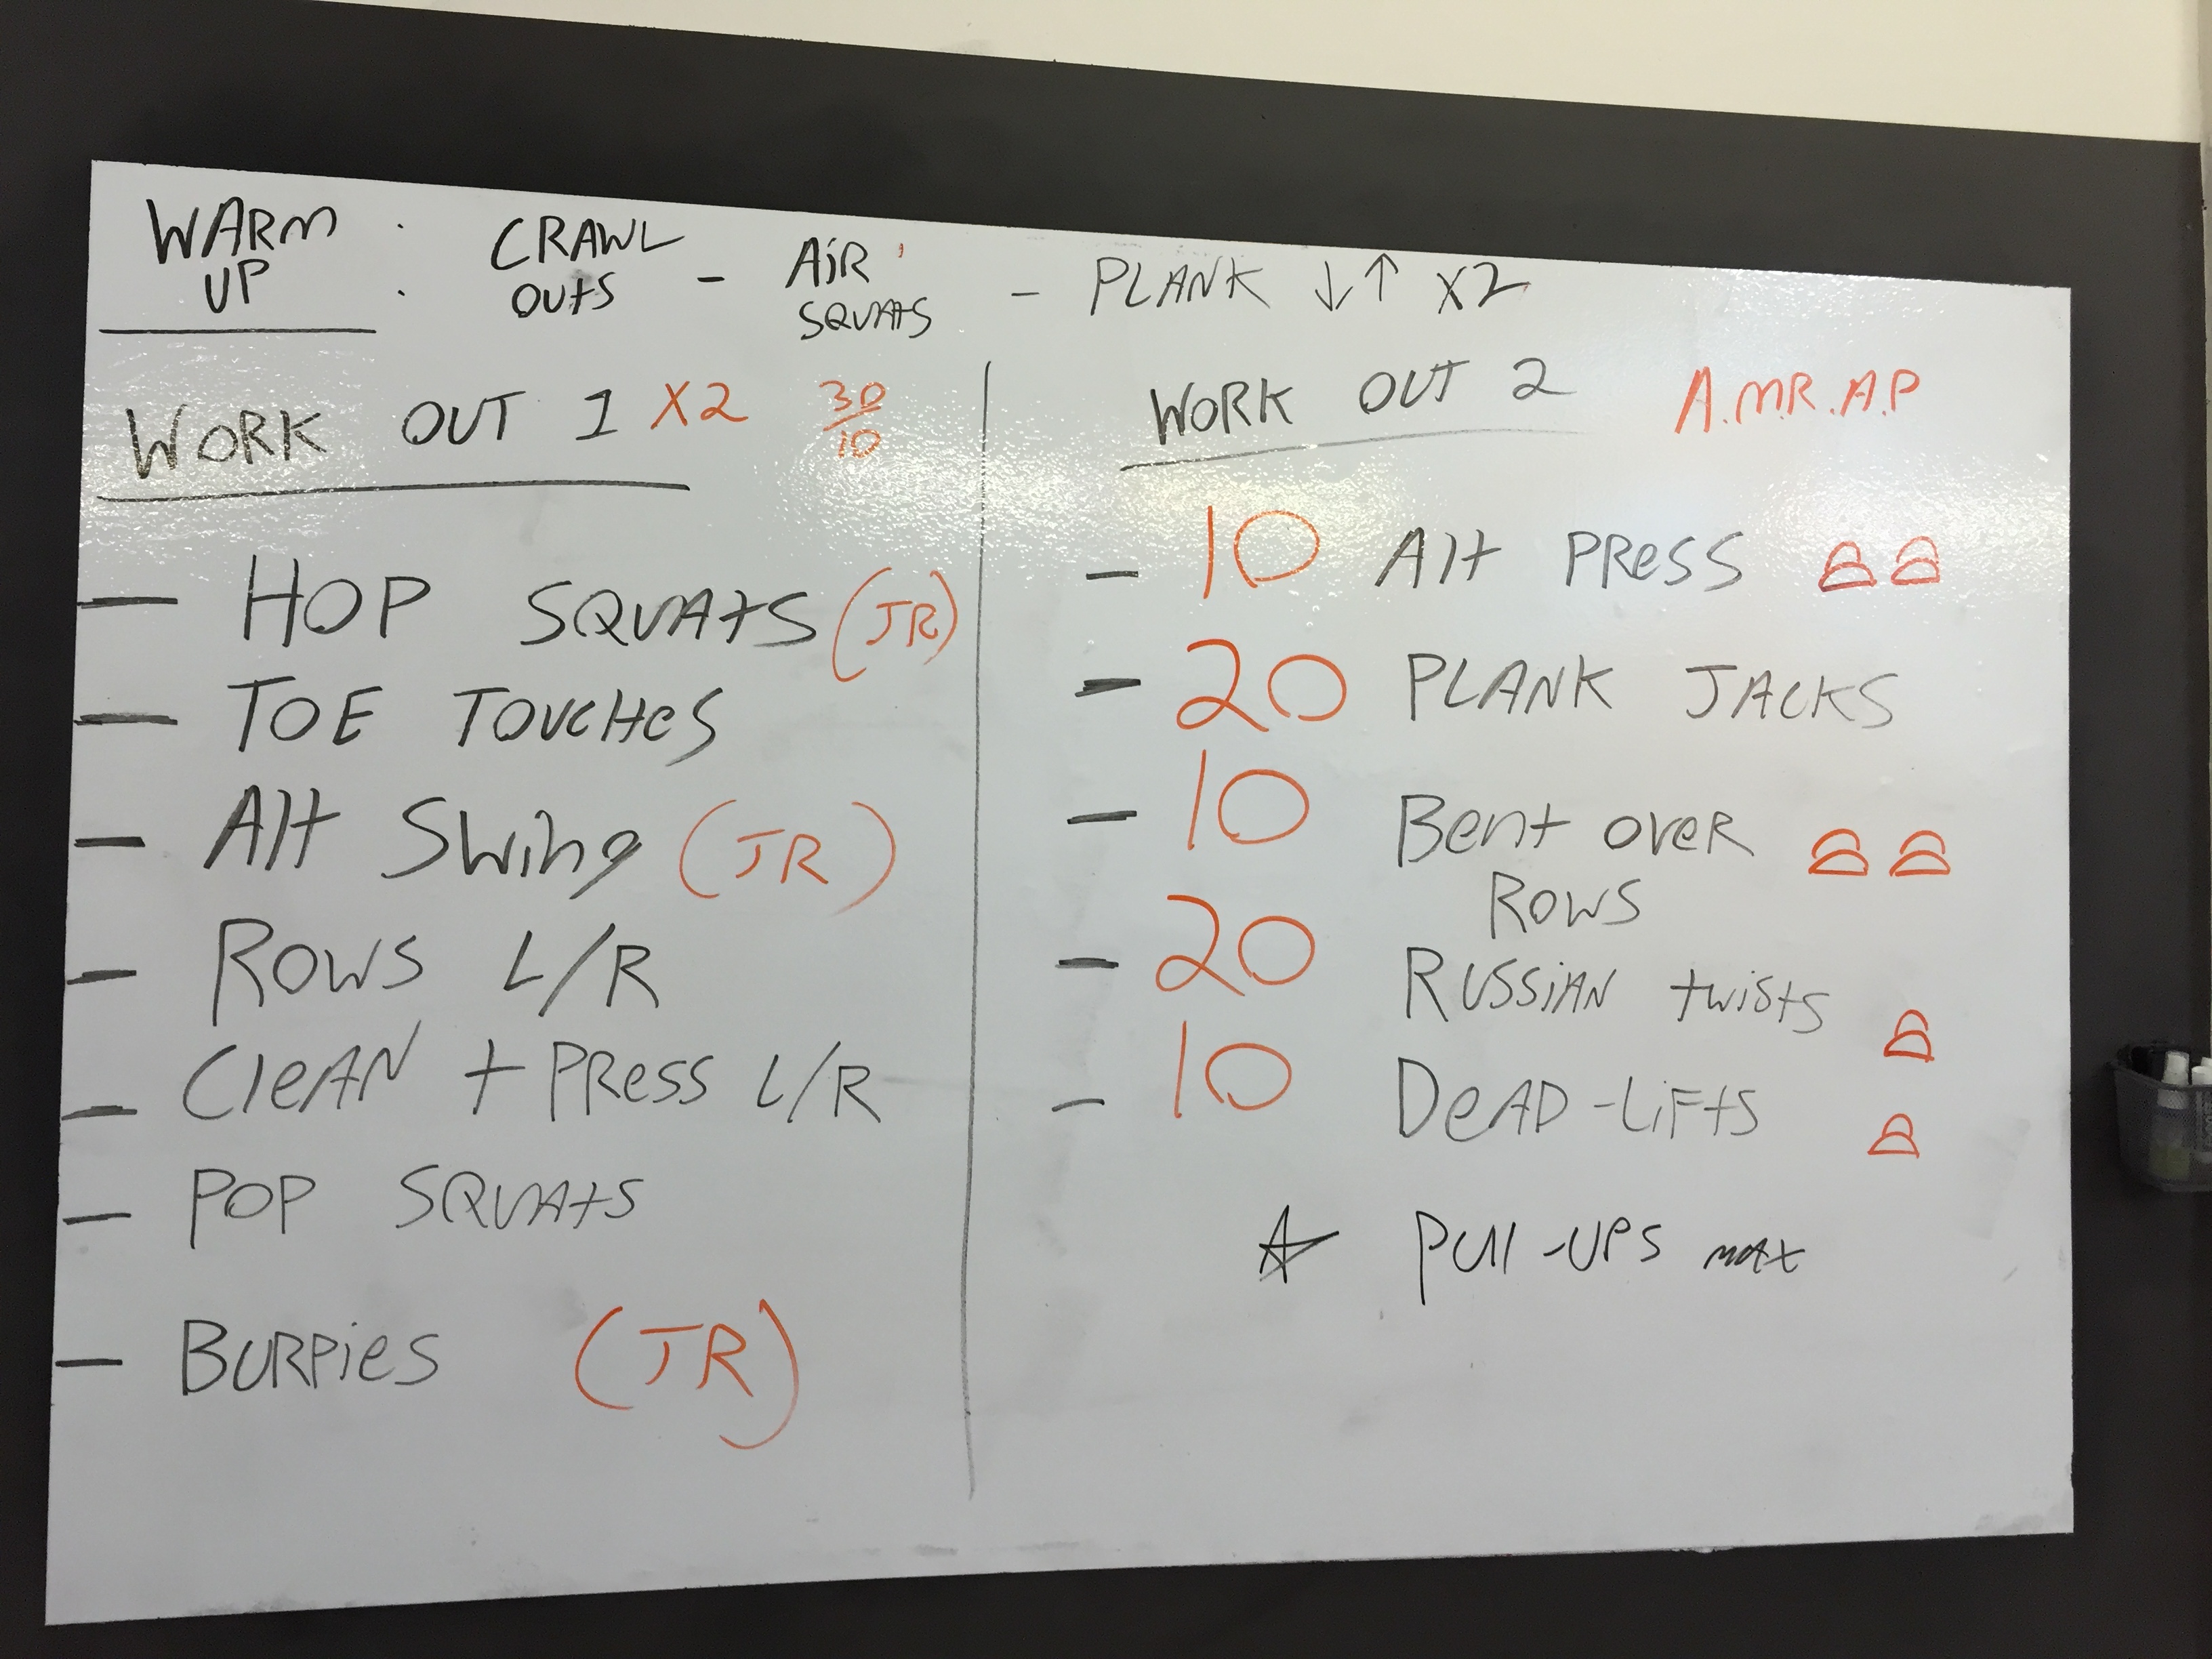 WARM UP : CRAWL OUTS - AIR SQUATS - PLANK ↓↑ X2
WORK OUT 1 X2 30/10
- HOP SQUATS (JR)
- TOE TOUCHES
- Alt Swing (JR)
- ROWS L/R
- CleAN + PRess L/R
- POP SQUATS
- BURPies (JR)
WORK OUT 2 A.M.R.A.P
- 10 Alt PRess
- 20 PLANK JACKS
- 10 Bent over ROWS
- 20 RUSSiAN twists
- 10 DeAD-LiFts
☆ PUll-UPS MAX